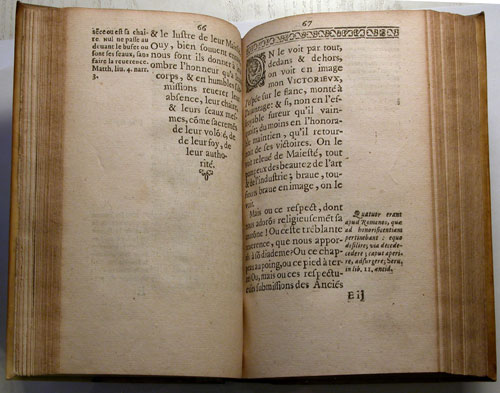 66
hôre ou est sa chai-
re nul ne passe au
deuant le bufet ou
font ses seaux, sans
faire la reuerence.
Matth. liu. 4. narr.
3.
& le lustre de leur Maiesté
Ouy, bien souuent
nous sont ils donner à
ombre l'honneur qu'à
corps, & en humbles
missions reuerer
absence, leur chaire,
& leurs seaux mes-
mes, cõme sacremẽs
de leur volõté, de
de leur foy, de
leur autho-
rité.
67
N le voit par tout,
dedans & dehors,
on voit en image
mon VICTORIEVX,
l'espée sur le flanc, monté à
& si, non en l'ef-
fureur qu'il vain-
du moins en l'honora-
maintien, qu'il retour-
de ses victoires. On le
releué de Maiesté, tout
des beautez de l'art
de l'industrie; braue, tou-
braue en image, on le
Mais ou ce respect, dont
adorõs religieusemẽt sa
Ou ceste trẽblante
que nous appor-
diademe? Ou ce chap-
au poing, ou ce pied à ter-
Ou, mais ou ces respectu-
submissions des Anciẽs
Quatuor erant
apud Romanos, quæ
ad honorificentiam
pertinebant: equo
desilire, via decede-
cedere; caput aperi-
re, adsurgere; Seru.
in lib. 11. æneid.
E ij